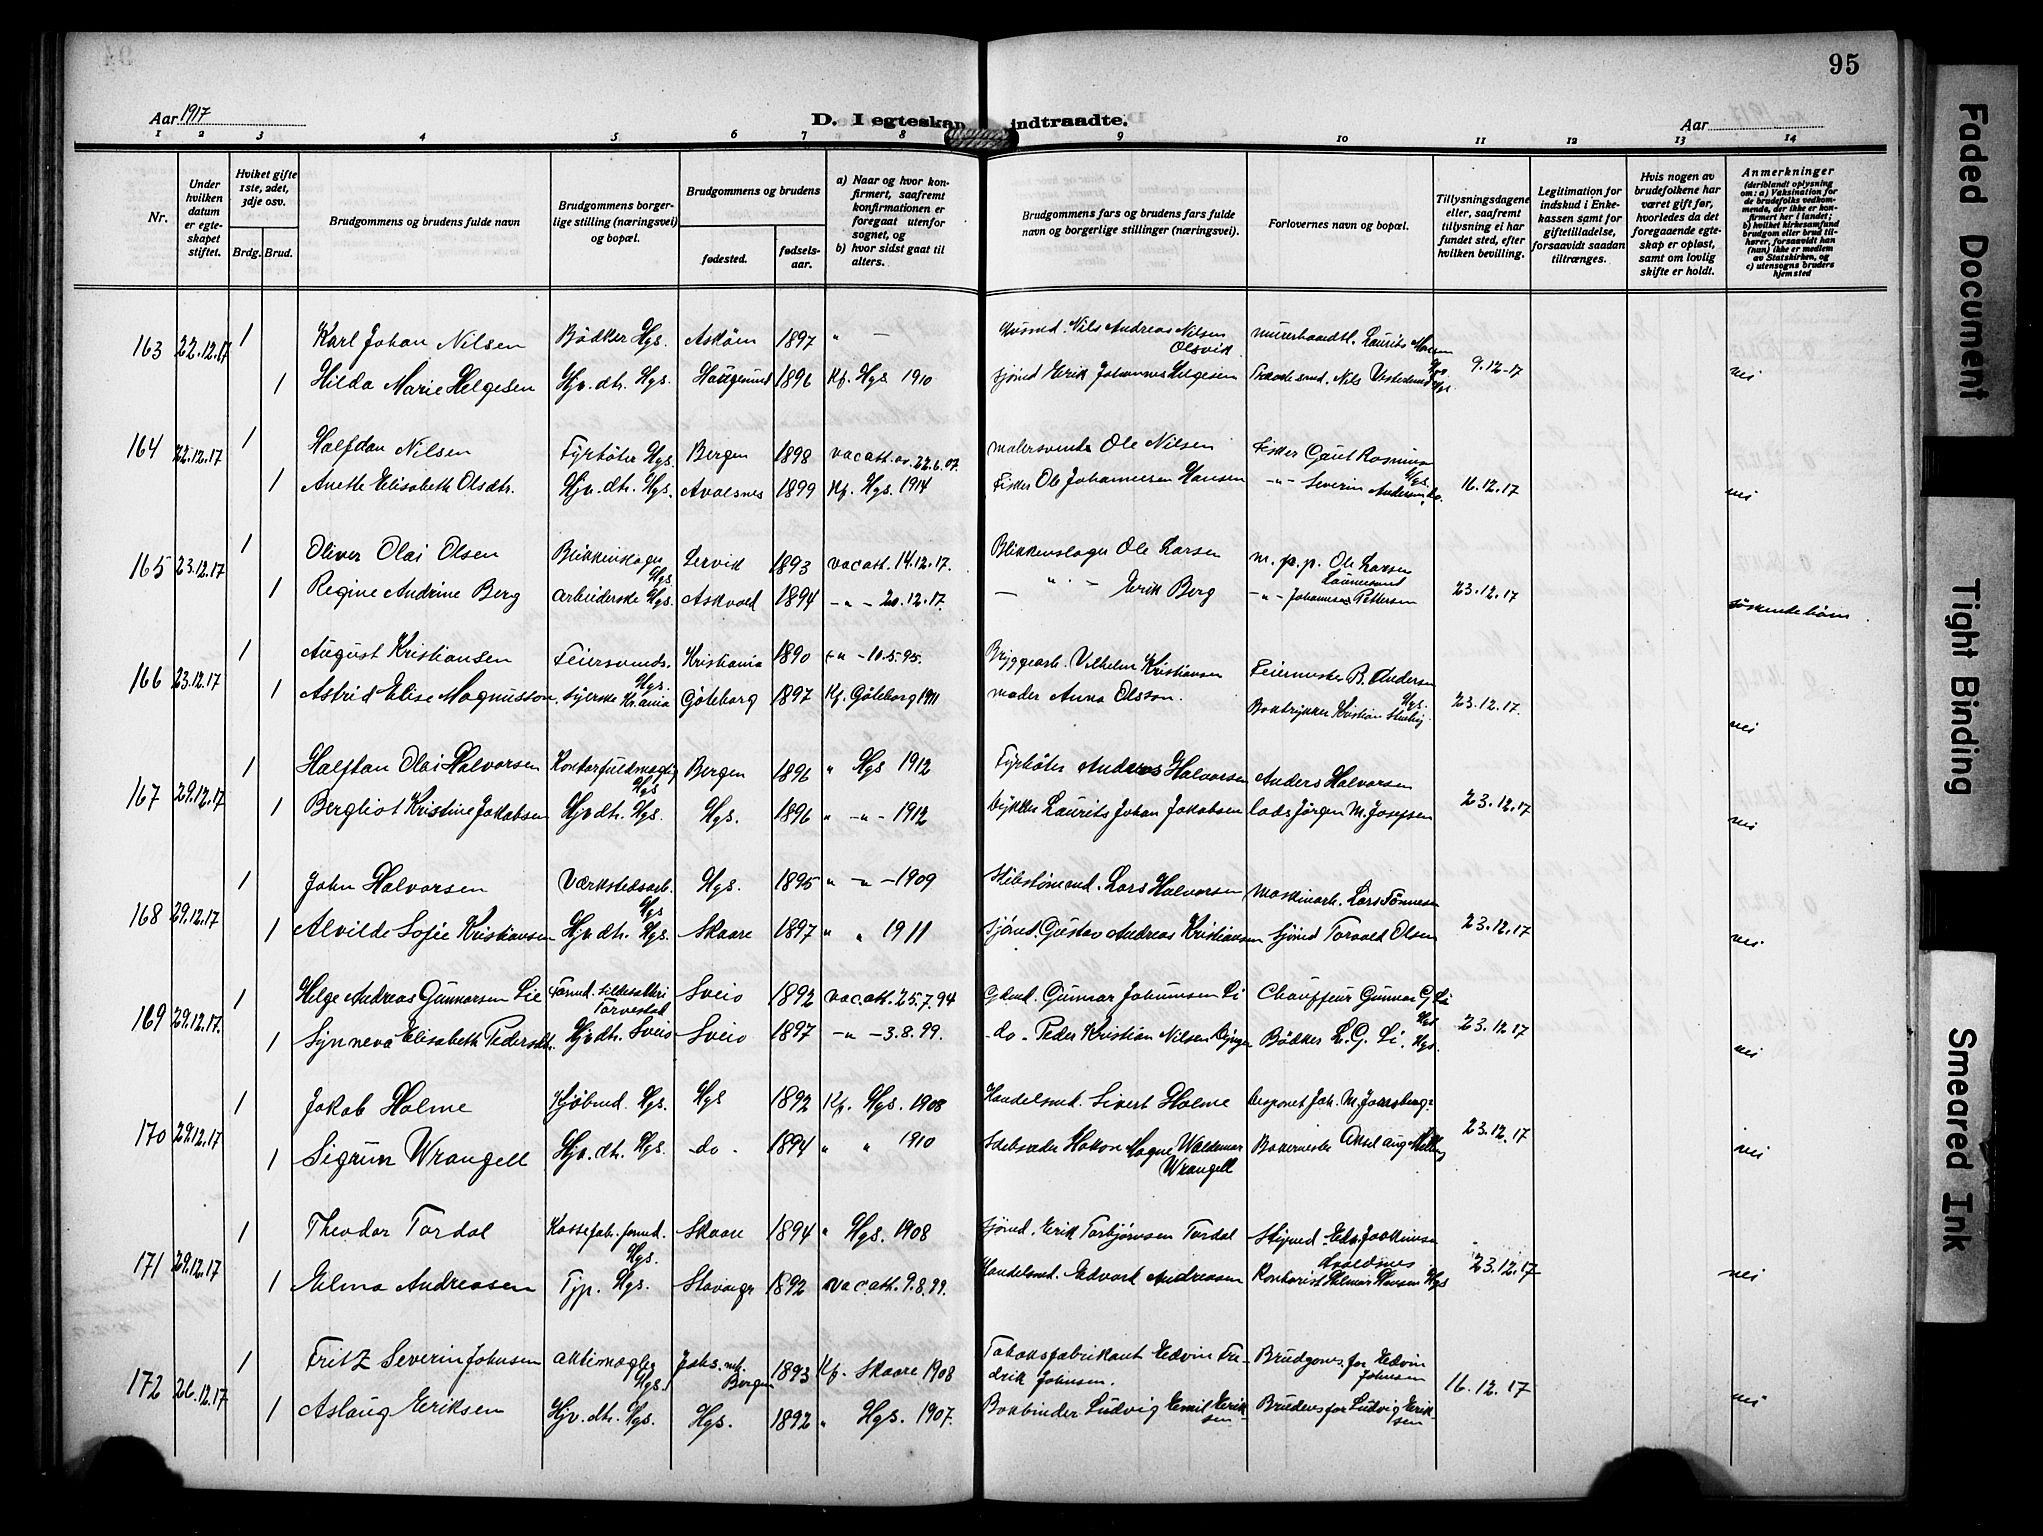 95
Aar 1917
D. Iegteskap indtraadte.
Aar
1 2 3 4 5 6 7 8 9 10 11 12 13 14
Nr.
Under hvilken datum er egteskapet stiftet.
Hviket gifte 1ste, 2det, 3dje osv.
Brdg. Brud.
Brudgommens og brudens fulde navn
Brudgommens borgerlige stilling (næringsvei) og bopæl.
Brudgommens og brudens
fødested.
fødselsaar.
a) Naar og hvor konfirmert, saafremt konfirmationen er foregaat utenfor sognet, og
b) hvor sidst gaat til alters.
Brudgommens fars og brudens fars fulde navn og borgerlige stillinger (næringsvei).
Forlovernes navn og bopæl.
Tillysningsdagene eller, saafremt tillysning ei har fundet sted, efter hvilken bevilling.
Legitimation for indskud i Enkekassen samt for giftetilladelse, forsaavidt saadan tiltrænges.
Hvis nogen av brudefolkene har været gift før, hvorledes da det foregaaende egteskap er opløst, samt om lovlig skifte er holdt.
Anmerkninger
(deriblandt oplysning om: a) Vaksination for de brudefolks vedkommende, der ikke er konfirmert her i landet; b) hvilket kirkesamfund brudgom eller brud tilhører, forsaavidt han (hun) ikke er medlem av Statskirken, og c) utensogns bruders hjemsted
163 22.12.17 1 Karl Johan Nilsen Bødker Hgs. Askøen 1897 " — Nils Andreas Nilsen Olsvik Laurits 9.12-17
1 Hilda Marie Helgesen Hjv. dtr. Hgs. Haugesund 1896 Kf. Hgs 1910 sjømd Erik Johannes Helgesen Nils nei
164 22.12.17 1 Halfdan Nilsen Fyrbøter Hgs. Bergen 1898 vac att. av 22.6.07. malersvend Ole Nilsen Fisker Gaut Rasmusen Hgs.
1 Anethe Elisabeth Olsdtr. Hjv. dtr. Hgs. Avalsnes 1899 Kf. Hgs. 1914 Fisker Ole Johannesen Hansen -"- Severin Andersen do. 16.12.17 nei
165 23.12.17 1 Oliver Olai Olsen Blikkenslager Hgs Lervik 1893 vac att. 14.12.17. Blikkenslager Ole Larsen m. p. p. Ole Larsen
1 Regine Andrine Berg arbeiderske Hgs. Askvold 1894 -"- 20.12.17. — " — Erik Berg -"- Johannes Pettersen 23.12.17 søskendebarn
166 23.12.17 1 August Kristiansen Feiersvend. Hgs. Kristiania 1890 -"- 10.5.95. Bryggearb. Vilhelm Kristiansen Feiermester B. Andersen Hgs.
1 Astrid Elise Magnusson syerske Kr.ania Gøteborg 1897 Kf. Gøteborg 1911 moder Anna Olsson. Boktrykker Kristian 23.12.17. nei
167 29.12.17 1 Halfdan Olai Halvorsen Kontorfuldmægtig Hgs Bergen 1896 " Hgs 1912 Fyrbøter Anders Halvorsen Anders Halvorsen
1 Bergliot Kristine Jakobsen Hjv. dtr. Hgs. Hgs. 1896 " -"- 1912 Laurits Johan Jakobsen lods Jørgen M. Josefsen 23.12.17 nei
168 29.12.17 1 John Halvorsen Værkstedsarb. Hgs Hgs. 1895 " -"- 1909 Skibstømmd. Lars Halvorsen Maskinarb. Lars Tønnesen
1 Alvilde Sofie Kristiansen Hjv. dtr. Hgs. Skaare 1897 " " 1911 sjømd. Gustav Andreas Kristiansen sjømd Torvald Olsen 23.12.17 nei
169 29.12.17. 1 Helge Andreas Gunnarsen Lie Formd. sildesalteri Torvestad Sveio 1892 vac. att. 25.7.94 Gdmd. Gunnar Johannesen Li Chauffeur Gunnar G. Li Hgs
1 Synneva Elisabeth Pedersdtr. Hjv. dtr. Sveio Sveio 1897 -"- 3.8.99. -do- Peder Kristian Nilsen Bødker L. G. Li. Hgs. 23.12.17 nei
170 29.12.17 1 Jakob Holme Kjøbmd. Hgs. Hgs 1892 Kf. Hgs. 1908 Handelsmd. Sivert Holme Disponet Joh. M.
1 Sigrun Wrangell Hjv. dtr. Hgs. -do- 1894 " " 1910 Skibsreder Hakon Magne Waldemar Wrangell Bakermester Aksel Aug. 23.12.17 nei
171 29.12.17 1 Theodor Tordal Kassefab. formd. Hgs. Skaare 1894 " Hgs. 1908 sjømd. Erik Torbjørnsen Tordal Styrmd. Edv. Joakimsen Avaldsnes
1 Elma Andreasen Typ. Hgs. Stavanger 1892 vac. att. 9.8.99. Handelsmd. Edvard Andreasen Kontorist Helmer Hansen Hgs 23.12.17 nei
172 26.12.17 1 Fritz Severin Johnsen aktiemægler Hgs. Johs. mk. Bergen 1893 Kf. Skaare 1908 Tobaksfabrikant Edvin Fredrik Johnsen. Brudgoms far Edvin Johnsen
1 Aslaug Eriksen Hjv. dtr. Hgs. Hgs. 1892 " Hgs. 1907. Bokbinder Ludvig Emil Eriksen Brudens far Ludvig Eriksen 16.12.17 nei
Faded Document
Tight Binding
Smeared Ink